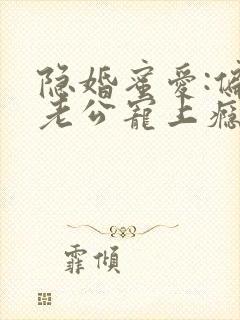 隐婚蜜爱:偏
老公宠上瘾
霏倾